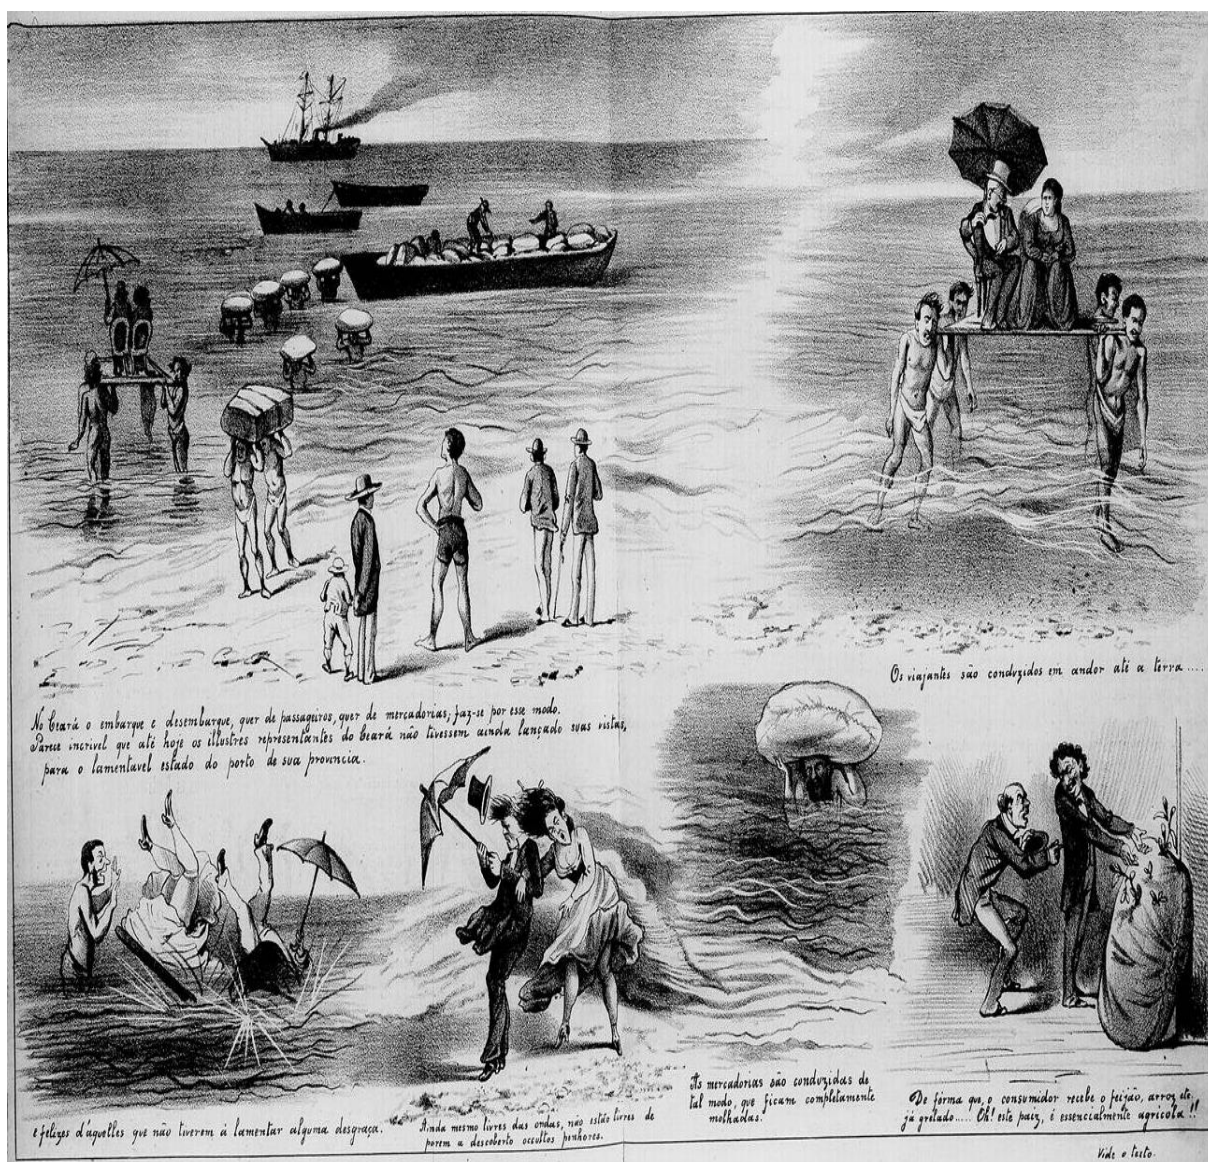 No Ceará o embarque e desembarque, quer de passageiros, quer de mercadorias; faz-se por esse modo.
Parece incrivel que até hoje os illustres representantes do Ceará não tivessem ainda lançado suas vistas,
para o lamentavel estado do porto de sua provincia.
Os viajantes são conduzidos em andor até a terra....
e felizes d'aquelles que não tiverem á lamentar alguma desgraça.
Ainda mesmo livres das ondas, não estão livres de
porem a descoberto occultos penhores.
As mercadorias são conduzidas de
tal modo, que ficam completamente
molhadas.
De fórma que, o consumidor recebe o feijão, arroz etc,
já grelado..... Oh! este paiz, é essencialmente agricola!!
Vide o texto.